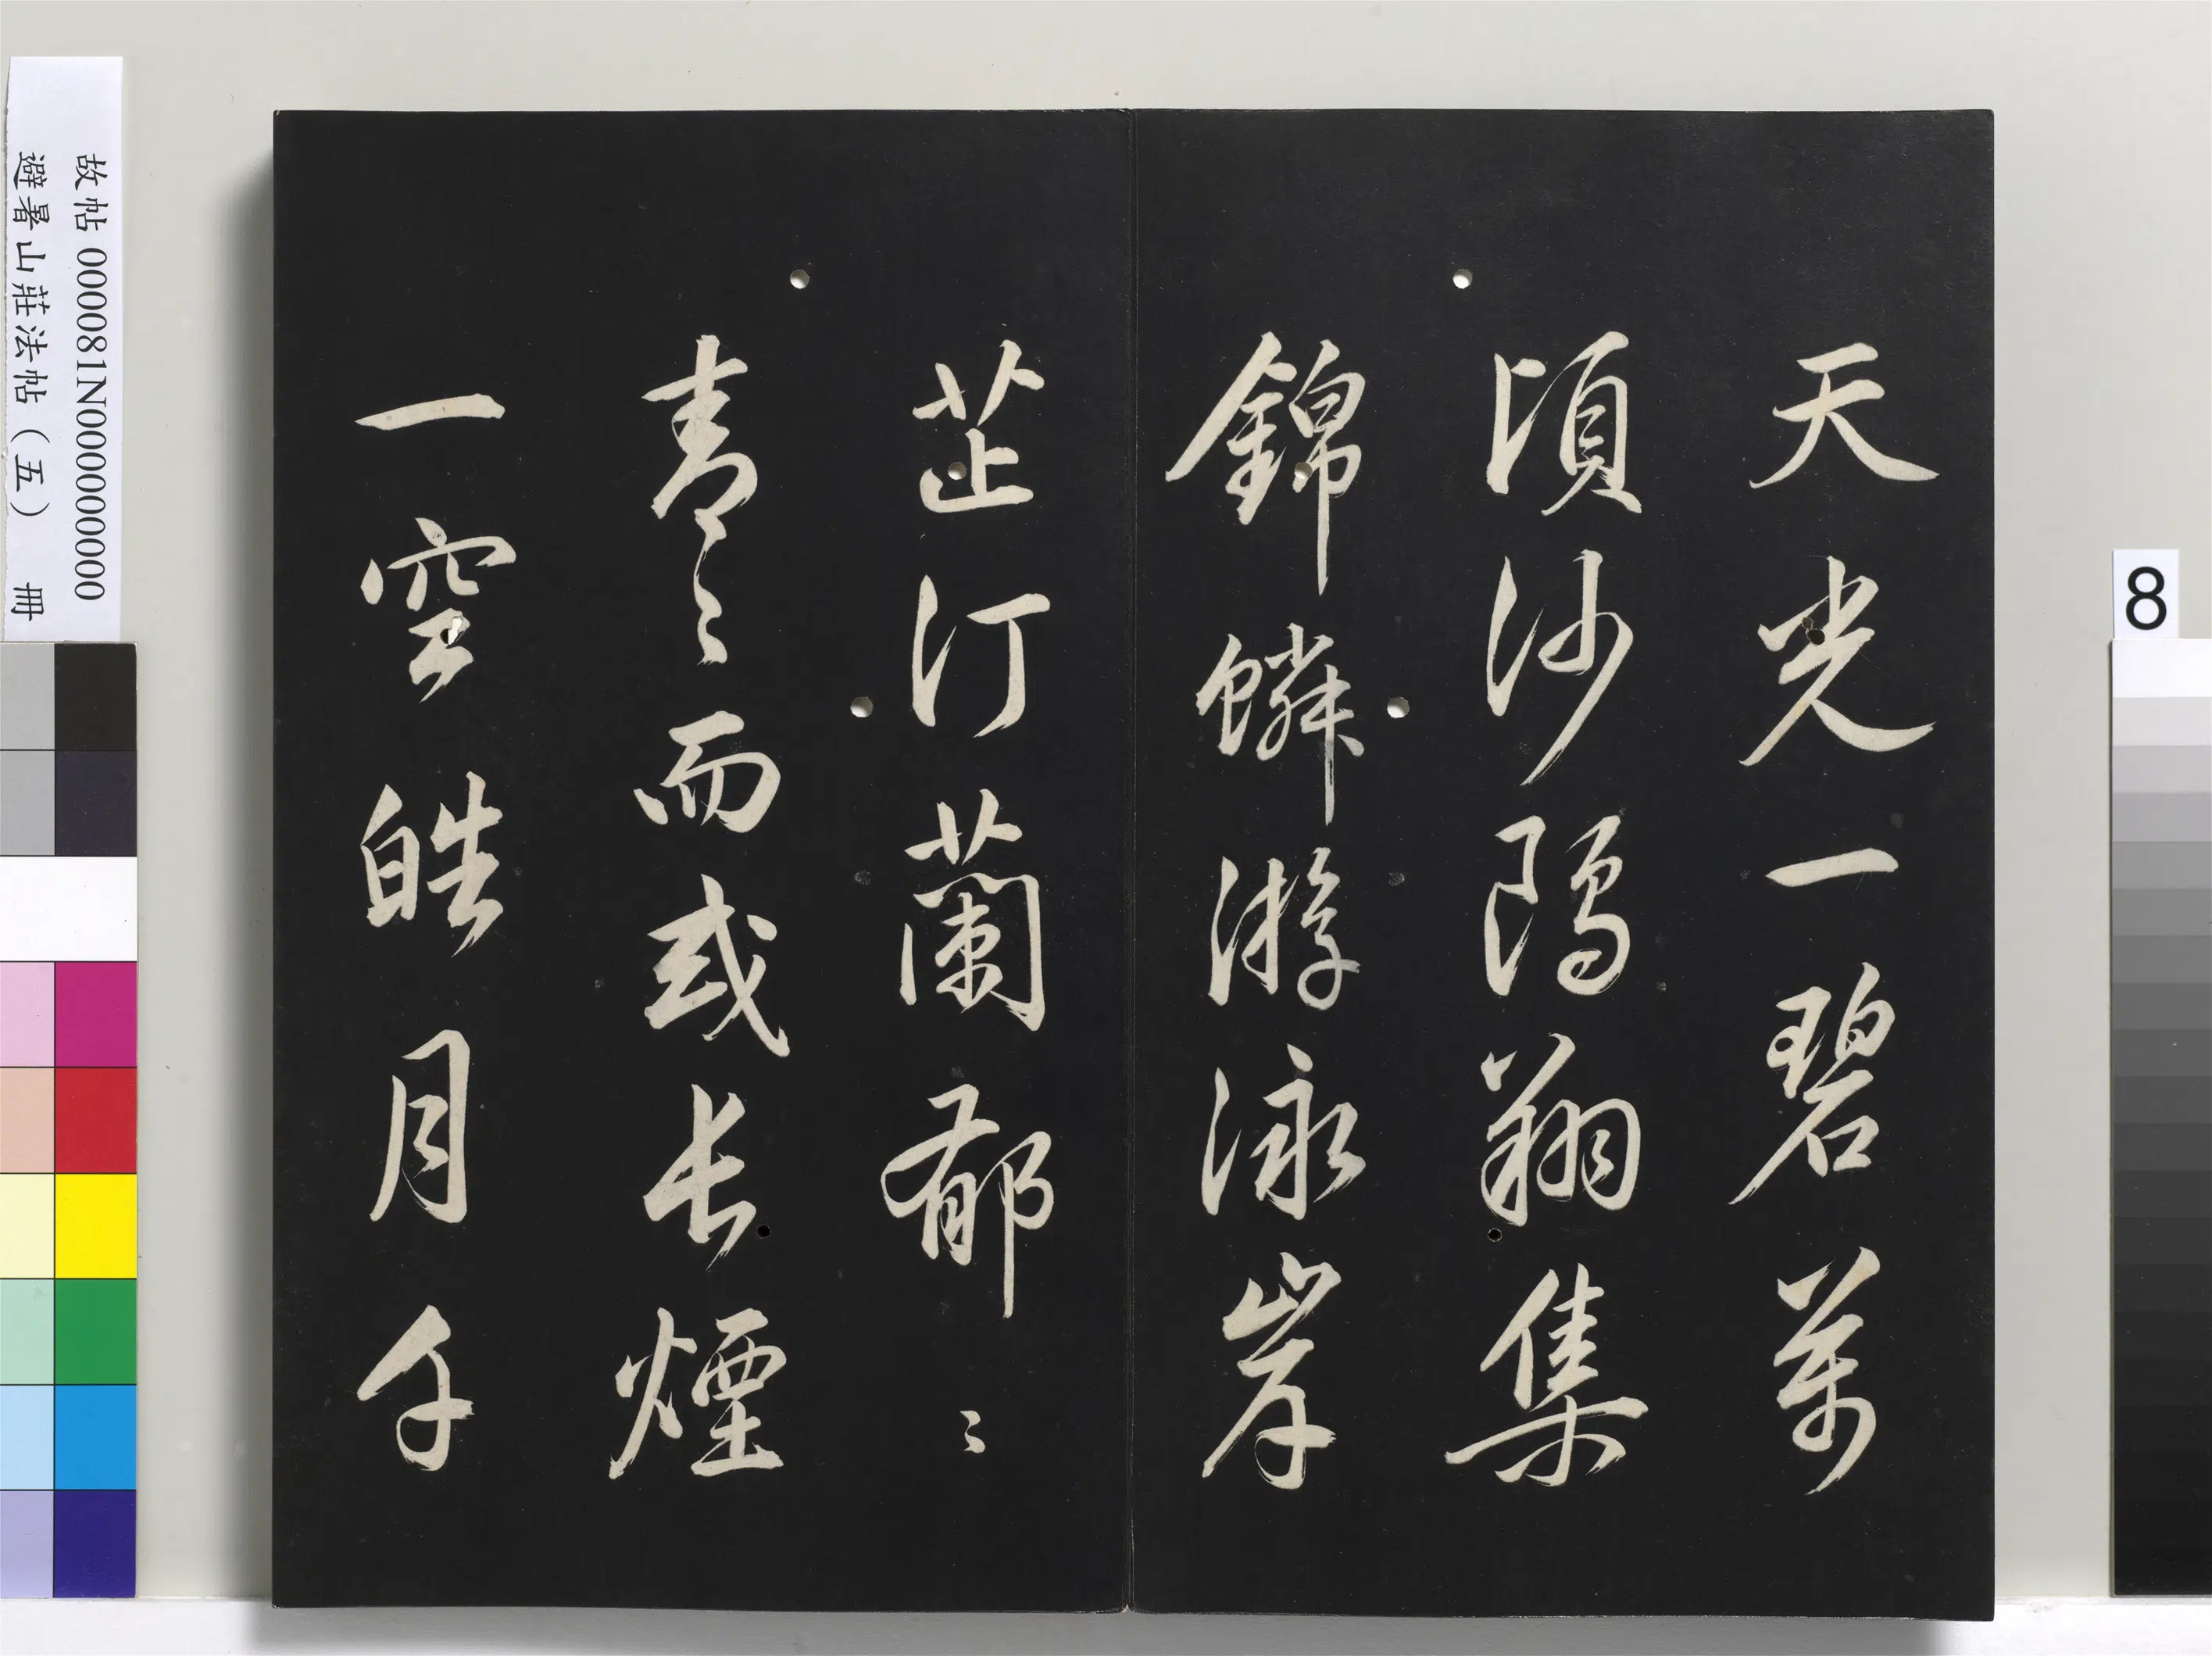 天光一碧萬
頃沙鷗翔集
錦鱗游泳岸
芷汀蘭郁〻
青〻而或長煙
一空皓月千
故帖 000081N000000000
避暑山莊法帖（五） 冊
8